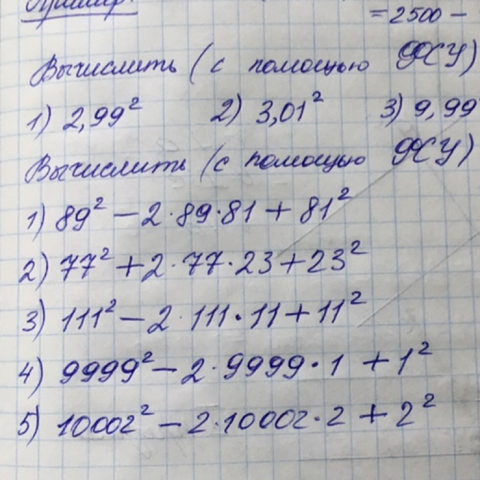 Пример.
=2500 -
Вычислить (с помощью ФСУ)
1) 2,99² 2) 3,01² 3) 9,99
Вычислить (с помощью ФСУ)
1) 89² - 2·89·81 + 81²
2) 77² + 2·77·23 + 23²
3) 111² - 2·111·11 + 11²
4) 9999² - 2·9999·1 + 1²
5) 10002² - 2·10002·2 + 2²